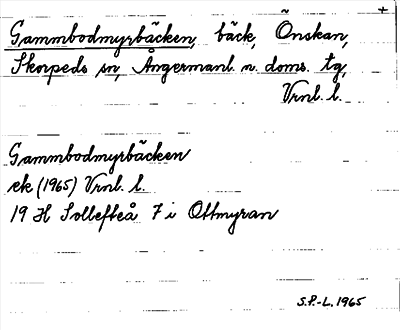 +
Gammbodmyrbäcken, bäck, Önskan,
Skorpeds sn, Ångermanl. n. doms. tg,
Vrnl. l.
Gammbodmyrbäcken
ek (1965) Vrnl. l.
19 H Sollefteå 7 i Ottmyran
S.P.-L. 1965